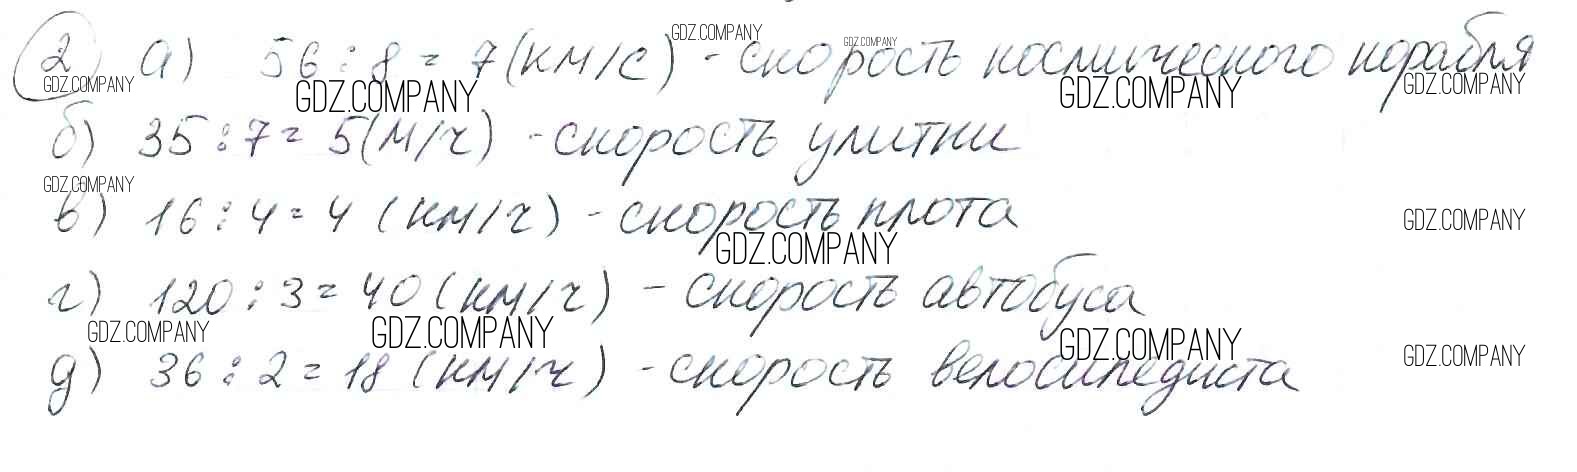 2) а) 56 : 8 = 7 (км/с) - скорость космического корабля
б) 35 : 7 = 5 (м/ч) - скорость улитки
в) 16 : 4 = 4 (км/ч) - скорость плота
г) 120 : 3 = 40 (км/ч) - скорость автобуса
д) 36 : 2 = 18 (км/ч) - скорость велосипедиста
GDZ.COMPANY
GDZ.COMPANY
GDZ.COMPANY
GDZ.COMPANY
GDZ.COMPANY
GDZ.COMPANY
GDZ.COMPANY
GDZ.COMPANY
GDZ.COMPANY
GDZ.COMPANY
GDZ.COMPANY
GDZ.COMPANY
GDZ.COMPANY